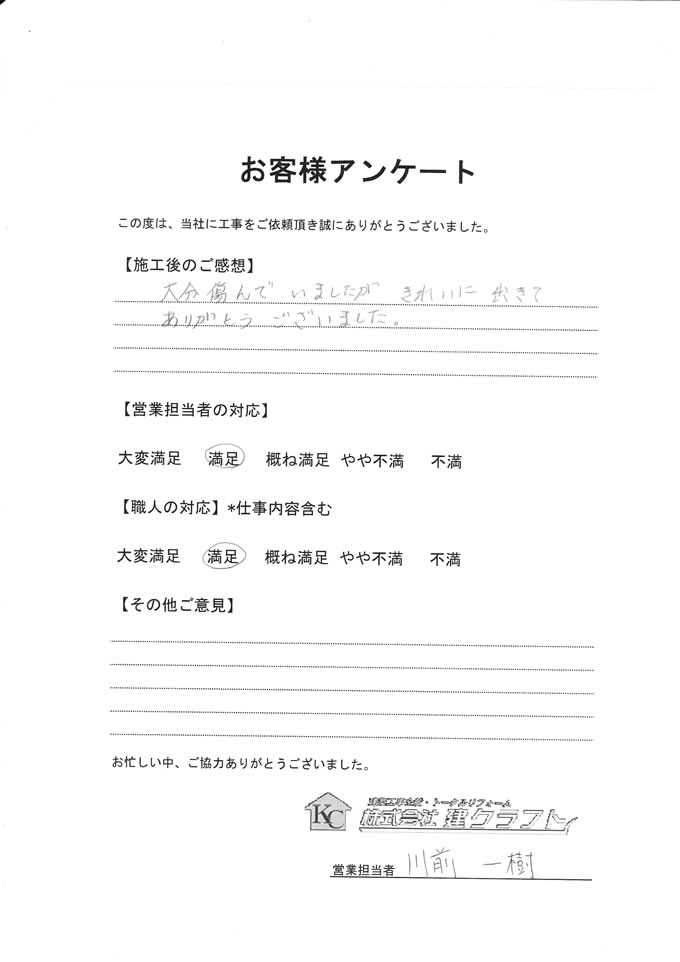 お客様アンケート
この度は、当社に工事をご依頼頂き誠にありがとうございました。
【施工後のご感想】
大分傷んで いましたが きれいに 出きて
ありがとう ございました。
【営業担当者の対応】
大変満足 満足 概ね満足 やや不満 不満
【職人の対応】*仕事内容含む
大変満足 満足 概ね満足 やや不満 不満
【その他ご意見】
お忙しい中、ご協力ありがとうございました。
KC
建築工事全般・トータルリフォーム
株式会社 建クラフト
営業担当者 川前 一樹